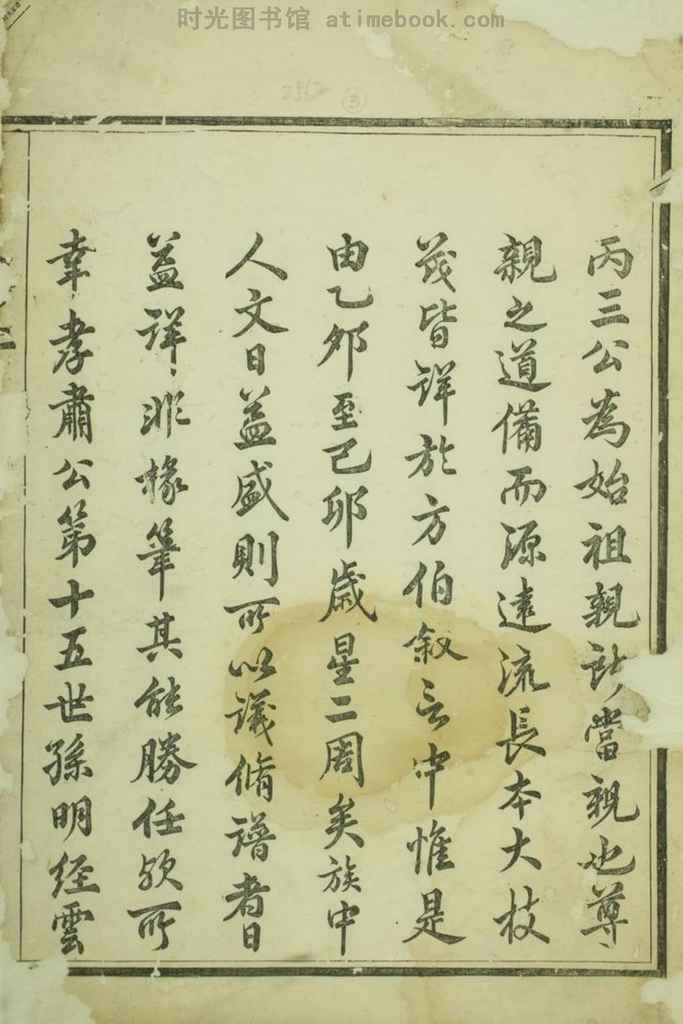 时光图书馆 atimebook.com
丙三公為始祖親所當親也尊〻
親之道備而源遠流長本大枝
茂皆詳於方伯叙言中惟是
由乙夘至己卯歲星二周矣族中
人文日益盛則所以議脩譜者日
益詳〻非椽筆其能勝任欤所
幸孝肅公第十五世孫明經雲